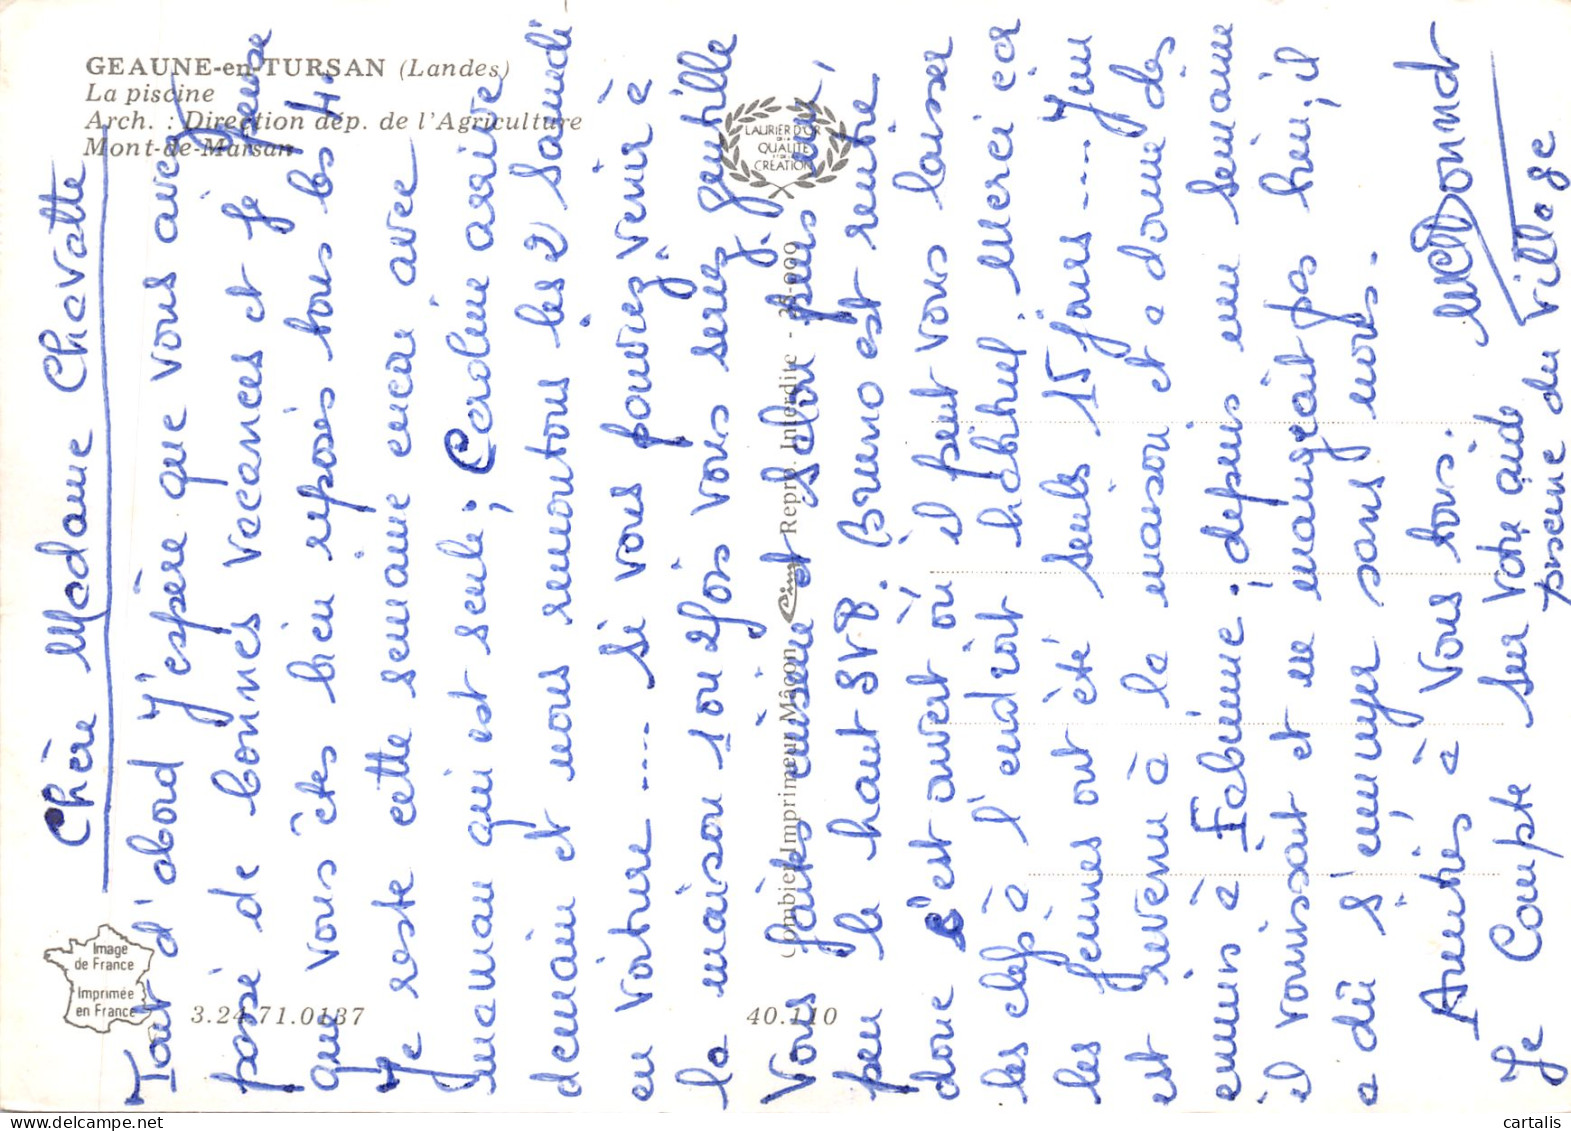 GEAUNE-en-TURSAN (Landes)
La piscine
Arch. : Direction dép. de l'Agriculture
Mont-de-Marsan
LAURIER D'OR
DE LA
QUALITÉ
ET DE LA
CRÉATION
Image
de France
Imprimée
en France
3.24.71.0137
40.110
Combier Imprimeur Mâcon - Cim - Repro. Interdite -
Chère Madame Chavatte
Tout d'abord J'espère que vous avez
passé de bonnes vacances et je pense
que vous êtes bien reposés tous les 4.
Je reste cette semaine encore avec
maman qui est seule ; Caroline arrive
demain et nous remontons les 2 Samedi
en voiture .... Si vous pouvez venir à
la maison 1 ou 2 fois vous serez gentille
Vous faites cuisine et salon puis un
peu le haut SVP. Bruno est rentré
donc c'est ouvert où il peut vous laisser
les clefs à l'endroit habituel, Merci car
les jeunes ont été seuls 15 jours ....
est revenu à la maison et a donné des
ennuis à Fabienne ; depuis une semaine
il vomissait et ne mangeait pas bien, il
a dû s'ennuyer sans nous.
Amitiés à Vous tous.
Je Compte sur votre aide
piscine du village
cartalis